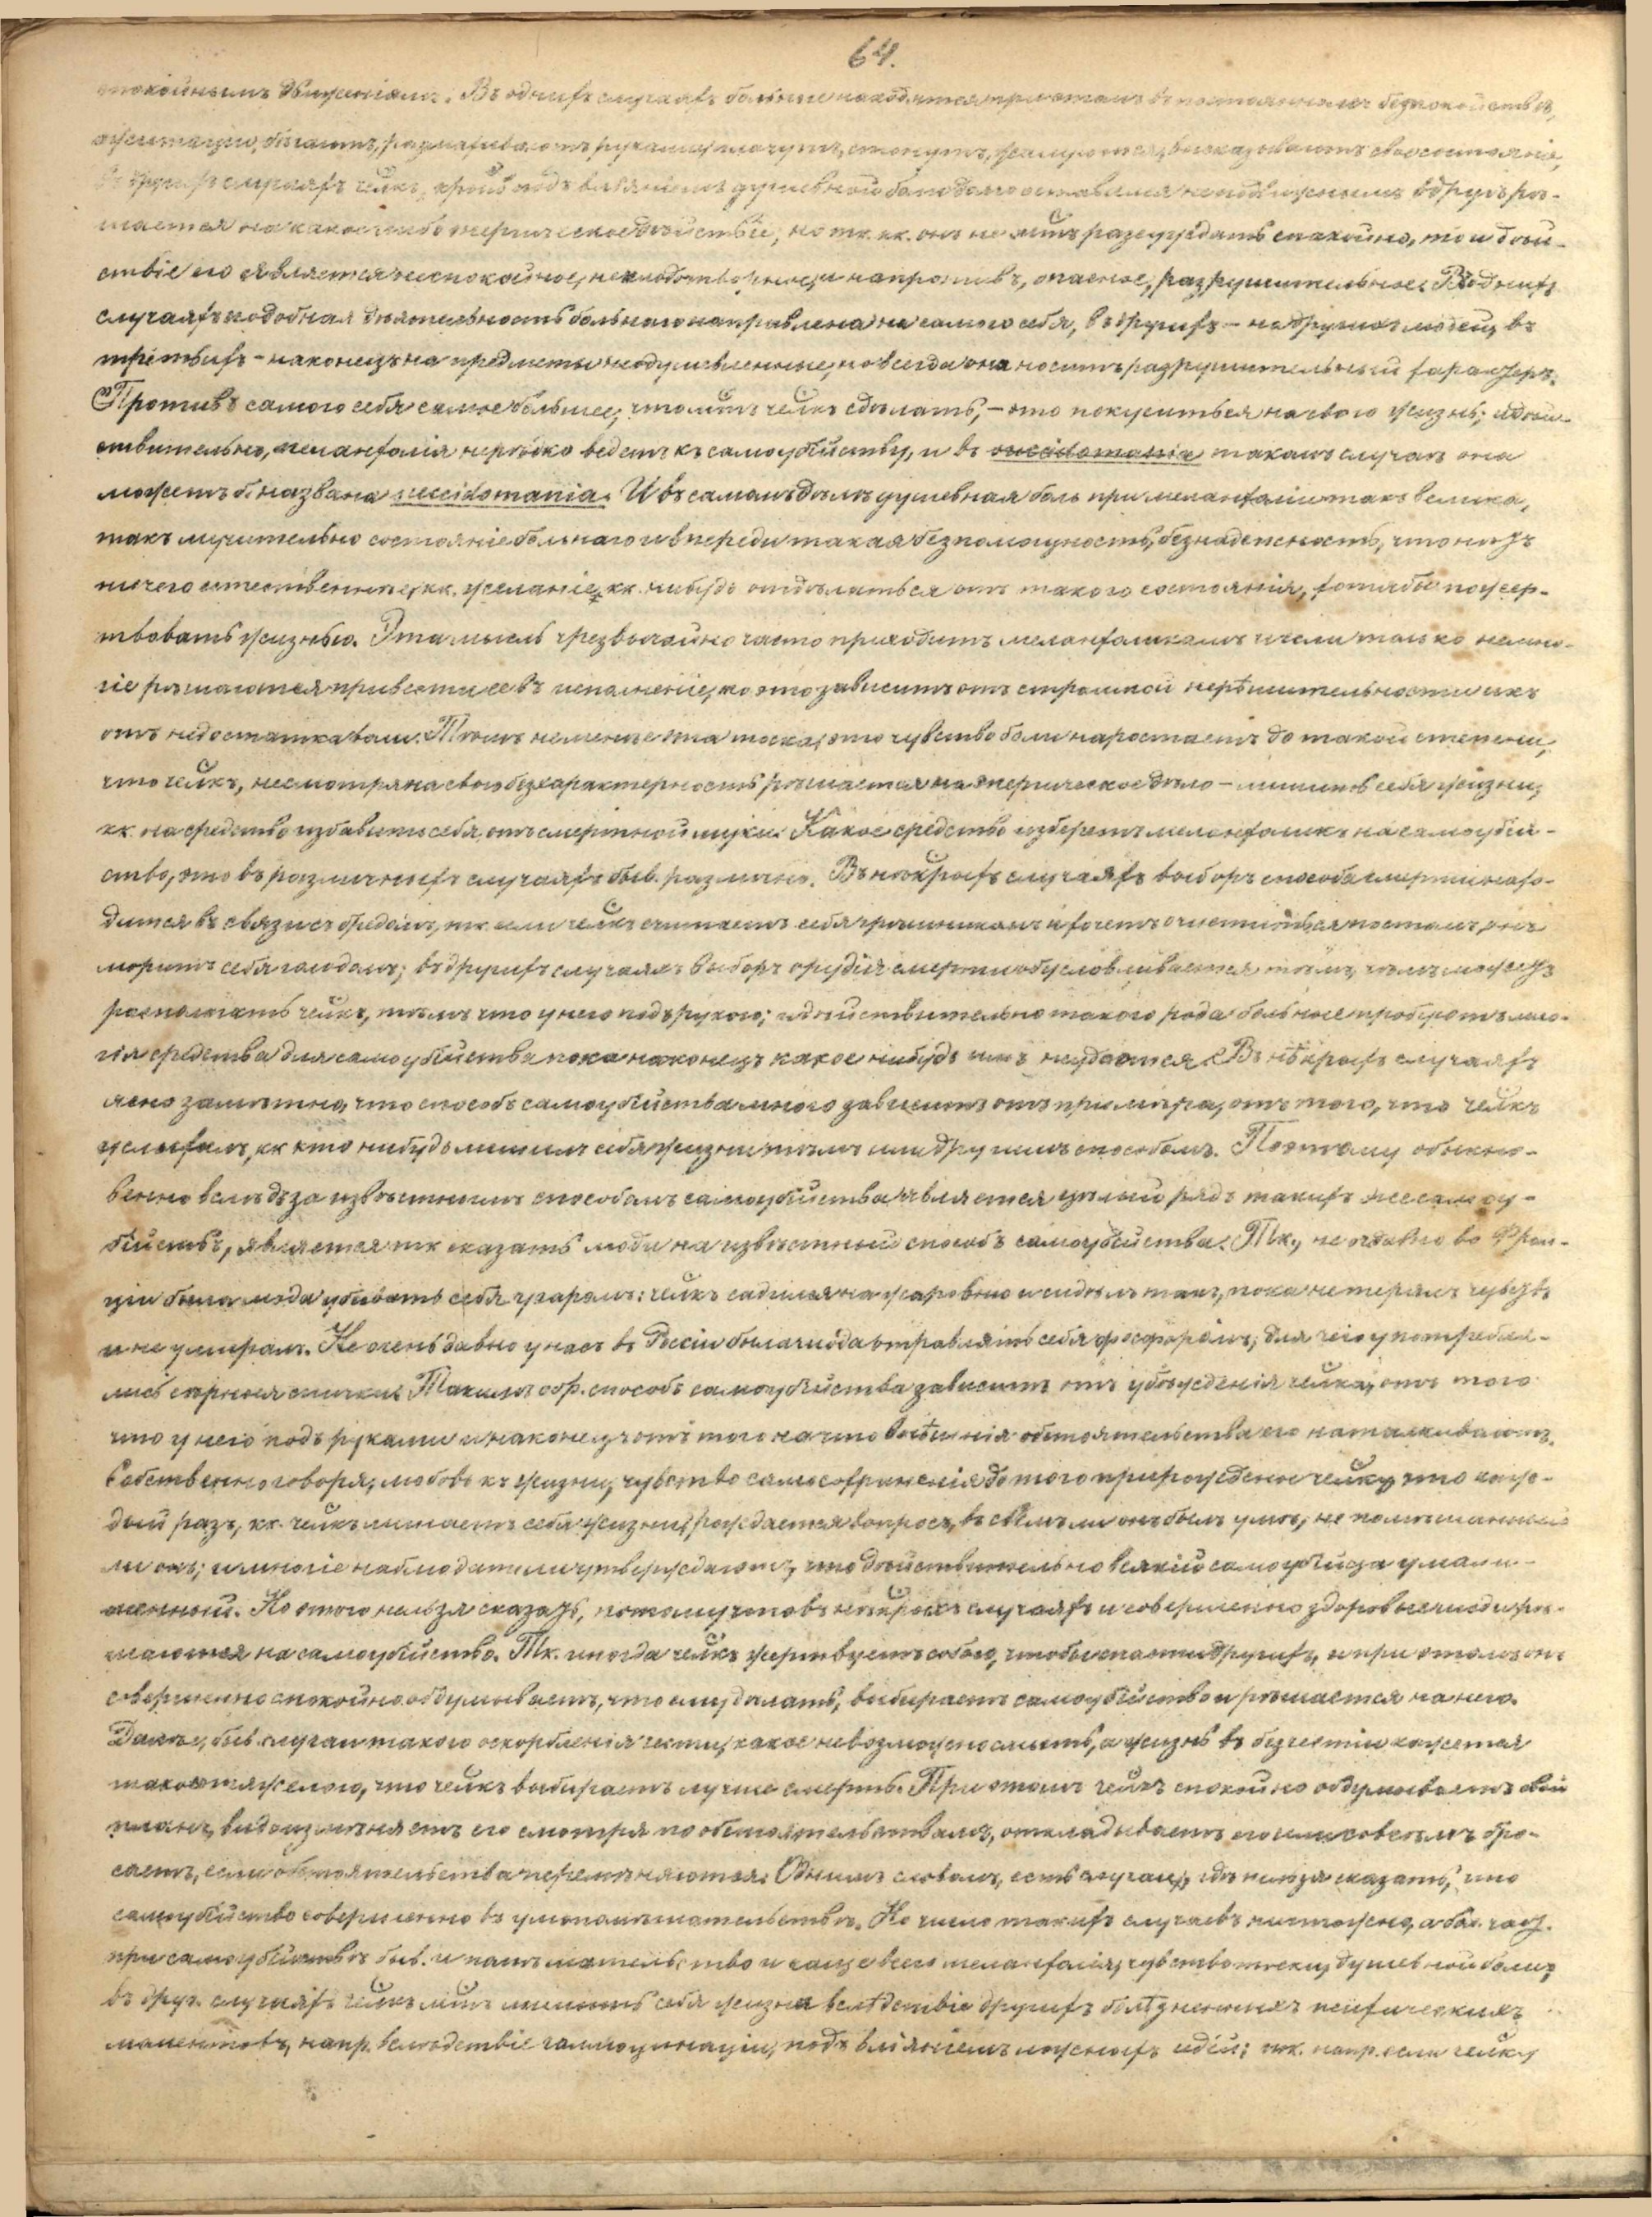 64.
спокойнымъ движеніямъ. Въ однихъ случаяхъ больные находятся при этомъ въ постоянномъ безпокойствѣ,
ажитаціи, бѣгаютъ, размахиваютъ руками, плачутъ, стонутъ, жалуются, высказываютъ свое состояніе,
въ другихъ случаяхъ челкъ, крый подъ вліяніемъ душевной боли долго оставался неподвижнымъ вдругъ рѣ-
шается на какое либо энергическое дѣйствіе, но тк. кк. онъ не мѣтъ разсуждать спокойно, то и дѣй-
ствіе его является неспокойное, неплодотворное, и напротивъ, опасное, разрушительное. Въ однихъ
случаяхъ подобная дѣятельность больного направлена на самого себя, въ другихъ – на другихъ людей, въ
третьихъ – наконецъ на предметы неодушевленные, но всегда она носитъ разрушительный характеръ.
Противъ самого себя самое большее, что мѣтъ челкъ сдѣлать, – это покуситься на свою жизнь; и дѣй-
ствительно, меланхолія нерѣдко ведетъ къ самоубійству, и въ такомъ случаѣ она
можетъ б. названа suicidomania. И въ самомъ дѣлѣ душевная боль при меланхоліи такъ велика,
такъ мучительно состояніе больного и впереди такая безпомощность, безнадежность, что нѣтъ
ничего естественнѣе, кк. желаніе кк. нибудь отдѣлаться отъ такого состоянія, хотя бы пожер-
твовать жизнью. Эта мысль чрезвычайно часто приходитъ меланхоликамъ и если только немно-
гіе рѣшаются привести ее въ исполненіе, то это зависитъ отъ страшной нерѣшительности ихъ
отъ недостатка воли. Тѣмъ не менѣе эта тоска, это чувство боли наростаетъ до такой степени,
что челкъ, несмотря на свою безхарактерность рѣшается на энергическое дѣло – лишить себя жизни,
кк. на средство избавить себя отъ смертной муки. Какое средство изберетъ меланхоликъ на самоубій-
ство, это въ различныхъ случаяхъ быв. различно. Въ нѣкрыхъ случаяхъ выборъ способа смерти нахо-
дится въ связи съ бредомъ, тк. если челкъ считаетъ себя грѣшникомъ и хочетъ очиститься постомъ, онъ
моритъ себя голодомъ; въ другихъ случаяхъ выборъ орудія смерти обусловливается тѣмъ, чѣмъ можетъ
располагать челкъ, тѣмъ что у него подъ рукою; и дѣйствительно такого рода больные пробуютъ мно-
гія средства для самоубійства пока наконецъ какое нибудь имъ не удастся. Въ нѣкрыхъ случаяхъ
ясно замѣтно, что способъ самоубійства много зависитъ отъ примѣра, отъ того, что челкъ
услыхалъ, кк кто нибудь лишилъ себя жизни тѣмъ или другимъ способомъ. Поэтому обыкно-
венно вслѣдъ за извѣстнымъ способомъ самоубійства является цѣлый рядъ такихъ же самоу-
бійствъ, является тк сказать мода на извѣстный способъ самоубійства. Тк., не очень давно во Фран-
ціи была мода убивать себя угаромъ: челкъ садился на жаровню и сидѣлъ такъ, пока не терялъ чувствъ
и не умиралъ. Не очень давно у насъ въ Россіи была мода отравлять себя фосфоромъ, для чего употребля-
лись сѣрныя спички. Такимъ обр. способъ самоубійства зависитъ отъ убѣжденія челка, отъ того
что у него подъ руками и наконецъ отъ того на что внѣшнія обстоятельства его наталкиваютъ.
Собственно говоря, любовь къ жизни, чувство самосохраненія до того прирождены челку, что каж-
дый разъ, кк. челкъ лишаетъ себя жизни, рождается вопросъ, въ своемъ ли онъ былъ умѣ, не помѣшанный
ли онъ; и многіе наблюдатели утверждаютъ, что дѣйствительно всякій самоубійца умали-
шенный. Но этого нельзя сказать, потому что въ нѣкрыхъ случаяхъ и совершенно здоровые люди рѣ-
шаются на самоубійство. Тк. иногда челкъ жертвуетъ собою, чтобы спасти другихъ, и при этомъ онъ
совершенно спокойно обдумываетъ, что ему дѣлать, выбираетъ самоубійство и рѣшается на него.
Далѣе, быв. случаи такого оскорбленія чести, какое невозможно смыть, а жизнь въ безчестіи кажется
такою тяжелою, что челкъ выбираетъ лучше смерть. При этомъ челкъ спокойно обдумываетъ свой
планъ, видоизмѣняетъ его смотря по обстоятельствамъ, откладываетъ его или совсѣмъ бро-
саетъ, если обстоятельства перемѣняются. Однимъ словомъ, есть случаи, гдѣ нельзя сказать, что
самоубійство совершенно въ умопомѣшательствѣ. Но число такихъ случаевъ ничтожно, а бол. част.
при самоубійствѣ быв. и помѣшательство и чаще всего меланхолія, чувство тоски, душевной боли;
въ друг. случаяхъ челкъ мѣтъ лишить себя жизни вслѣдствіе другихъ болѣзненныхъ психическихъ
моментовъ, напр. вслѣдствіе галлюцинаціи, подъ вліяніемъ ложныхъ идей; тк. напр. если челку